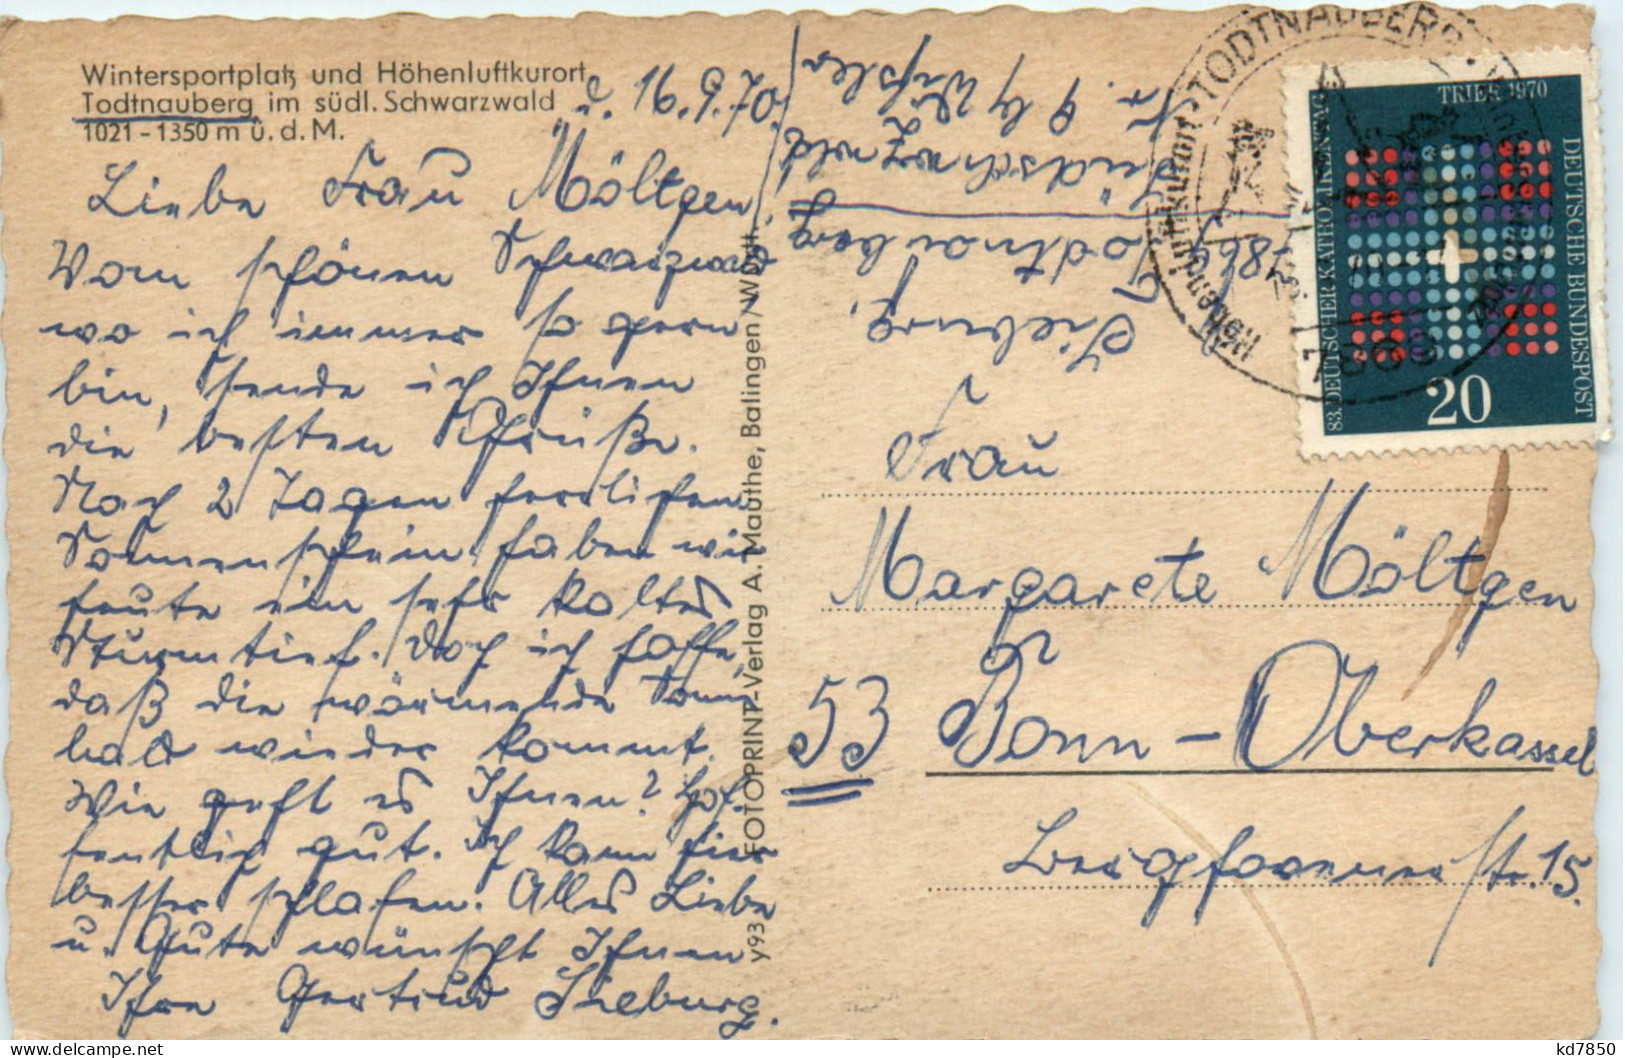 Wintersportplatz und Höhenluftkurort
Todtnauberg im südl. Schwarzwald
1021 - 1350 m ü. d. M.
d. 16.9.70.
Liebe Frau Möltgen!
Vom schönen Schwarzwald
wo ich immer so gern
bin, sende ich Ihnen
die besten Grüße.
Nach 2 Tagen herrlichen
Sonnenschein haben wir
heute ein sehr kaltes
Sturmtief. Doch ich hoffe,
daß die wärmende Sonne
bald wieder kommt.
Wie geht es Ihnen? Hof-
fentlich gut. Ich kann hier
besser schlafen. Alles Liebe
u. Gute wünscht Ihnen
Ihre Gertrud Sieburg.
Sieburg,
7869 Todtnauberg
Südschwarzwald
y93 FOTOPRINT-Verlag A. Mauthe, Balingen/Württ.
TODTNAUBERG
Höhenluftkurort
7869
TRIER 1970
83. DEUTSCHER KATHOLIKENTAG
DEUTSCHE BUNDESPOST
20
Frau
Margarete Möltgen
53 Bonn - Oberkassel
str. 15.
kd7850